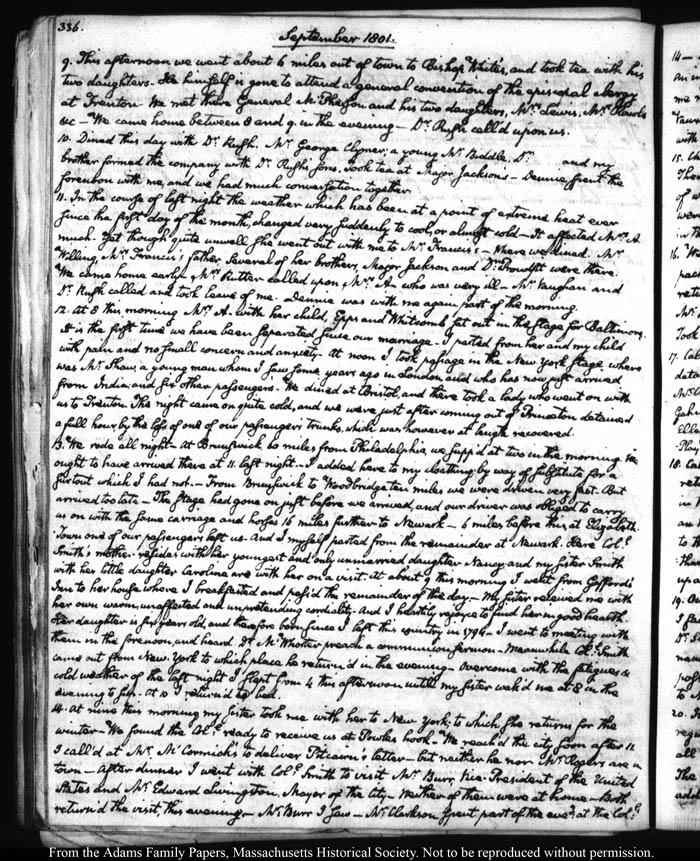 336.
September 1801.
9. This afternoon we went about 6 miles out of town to Bishop White's, and took tea with his
two daughters. He himself is gone to attend a general convention of the episcopal clergy
at Trenton. We met there General McPherson and his two daughters, Mrs. Lewis, Mrs.
&c — We came home between 8 and 9 in the evening — Dr. Rush call'd upon us.
10. Dined this day with Dr. Rush. Mr. George Clymer, a young Mr. Biddle, Dr. and my
brother formed the company with Dr. Rush's sons. Took tea at Major Jackson's — Dennie spent the
forenoon with me, and we had much conversation together.
11. In the course of last night the weather which has been at a point of extreme heat ever
since the first day of the month, changed very suddenly to cool, or almost cold — It affected Mrs. A.
much. Yet though quite unwell, she went out with me to Mr. Francis's — Where we dined. Mr.
Willing, Mrs. Francis's father, several of her brothers, Major Jackson and Dr. Proudfit were there.
We came home early. Mrs. Rutter called upon Mrs. A. who was very ill — Mr. Vaughan and
Dr. Rush called and took leave of me. Dennie was with me again part of the morning.
12. At 8 this morning Mrs. A. with her child, Epps and Whitcomb, set out in the stage for Baltimore.
It is the first time we have been separated since our marriage — I parted from her and my child
with pain and no small concern and anxiety. At noon I took passage in the New York stage, where
was Mr. Shaw, a young man whom I saw some years ago in London, and who has now just arrived
from India; and six other passengers. We dined at Bristol, and there took a lady, who went on with
us to Trenton. The night came on quite cold, and we were just after coming out of Princeton detained
a full hour, by the loss of one of our passenger's trunks, which was however at length recovered.
13. We rode all night. At Brunswick 60 miles from Philadelphia, we supp'd at two in the morning. We
ought to have arrived there at 11. last night. — I added here to my cloathing by way of substitute for a
surtout which I had not. — From Brunswick to Woodbridge ten miles we were driven very fast. But
arrived too late — The stage had gone on just before we arrived, and our driver was obliged to carry
us on with the same carriage and horses 16 miles further to Newark — 6 miles before this, at Elizabeth
Town one of our passengers left us. And I myself parted from the remainder at Newark. Here Coll.
Smith's mother resides with her youngest and only unmarried daughter Nancy, and my sister Smith
with her little daughter Caroline are with her on a visit. At about 9 this morning I went from Gifford's
Inn to her house where I breakfasted and pass'd the remainder of the day. — My sister received me with
her own warm, unaffected and unpretending cordiality. And I heartily rejoyce to find her in good health.
Her daughter is six years old, and therefore born since I left this country in 1794 — I went to meeting with
them in the forenoon, and heard Dr. McWhorter preach a communion sermon — Meanwhile Coll. Smith
came out from New-York to which place he return'd in the evening — Overcome with the fatigues &
cold weather of the last night I slept from 4 this afternoon until my sister wak'd me at 8 in the
evening to sup. At 10 I return'd to bed.
14. At nine this morning my sister took me with her to New York; to which she returns for the
winter — We found the Coll. ready to receive us at Powles hook. — We reach'd the city soon after 11.
I call'd at Mr. McCormick's to deliver Pitcairn's letter — but neither he nor Mr. Rogers are in
town — After dinner I went with Coll. Smith to visit Mr. Burr, Vice-President of the United
States and Mr. Edward Livingston, Mayor of the City. Neither of them were at home — Both
return'd the visit, this evening — Mr. Burr I saw — Mr. Clarkson spent part of the eveg. at the Coll's.
From the Adams Family Papers, Massachusetts Historical Society. Not to be reproduced without permission.